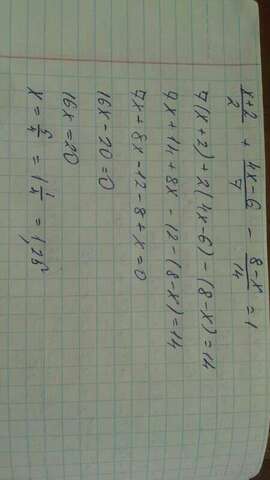 x+2/2 + 4x-6/7 - 8-x/14 = 1
7(x+2)+2(4x-6)-(8-x)=14
7x+14+8x-12-(8-x)=14
7x+8x-12-8+x=0
16x-20=0
16x=20
x=5/4=1 1/4=1,25